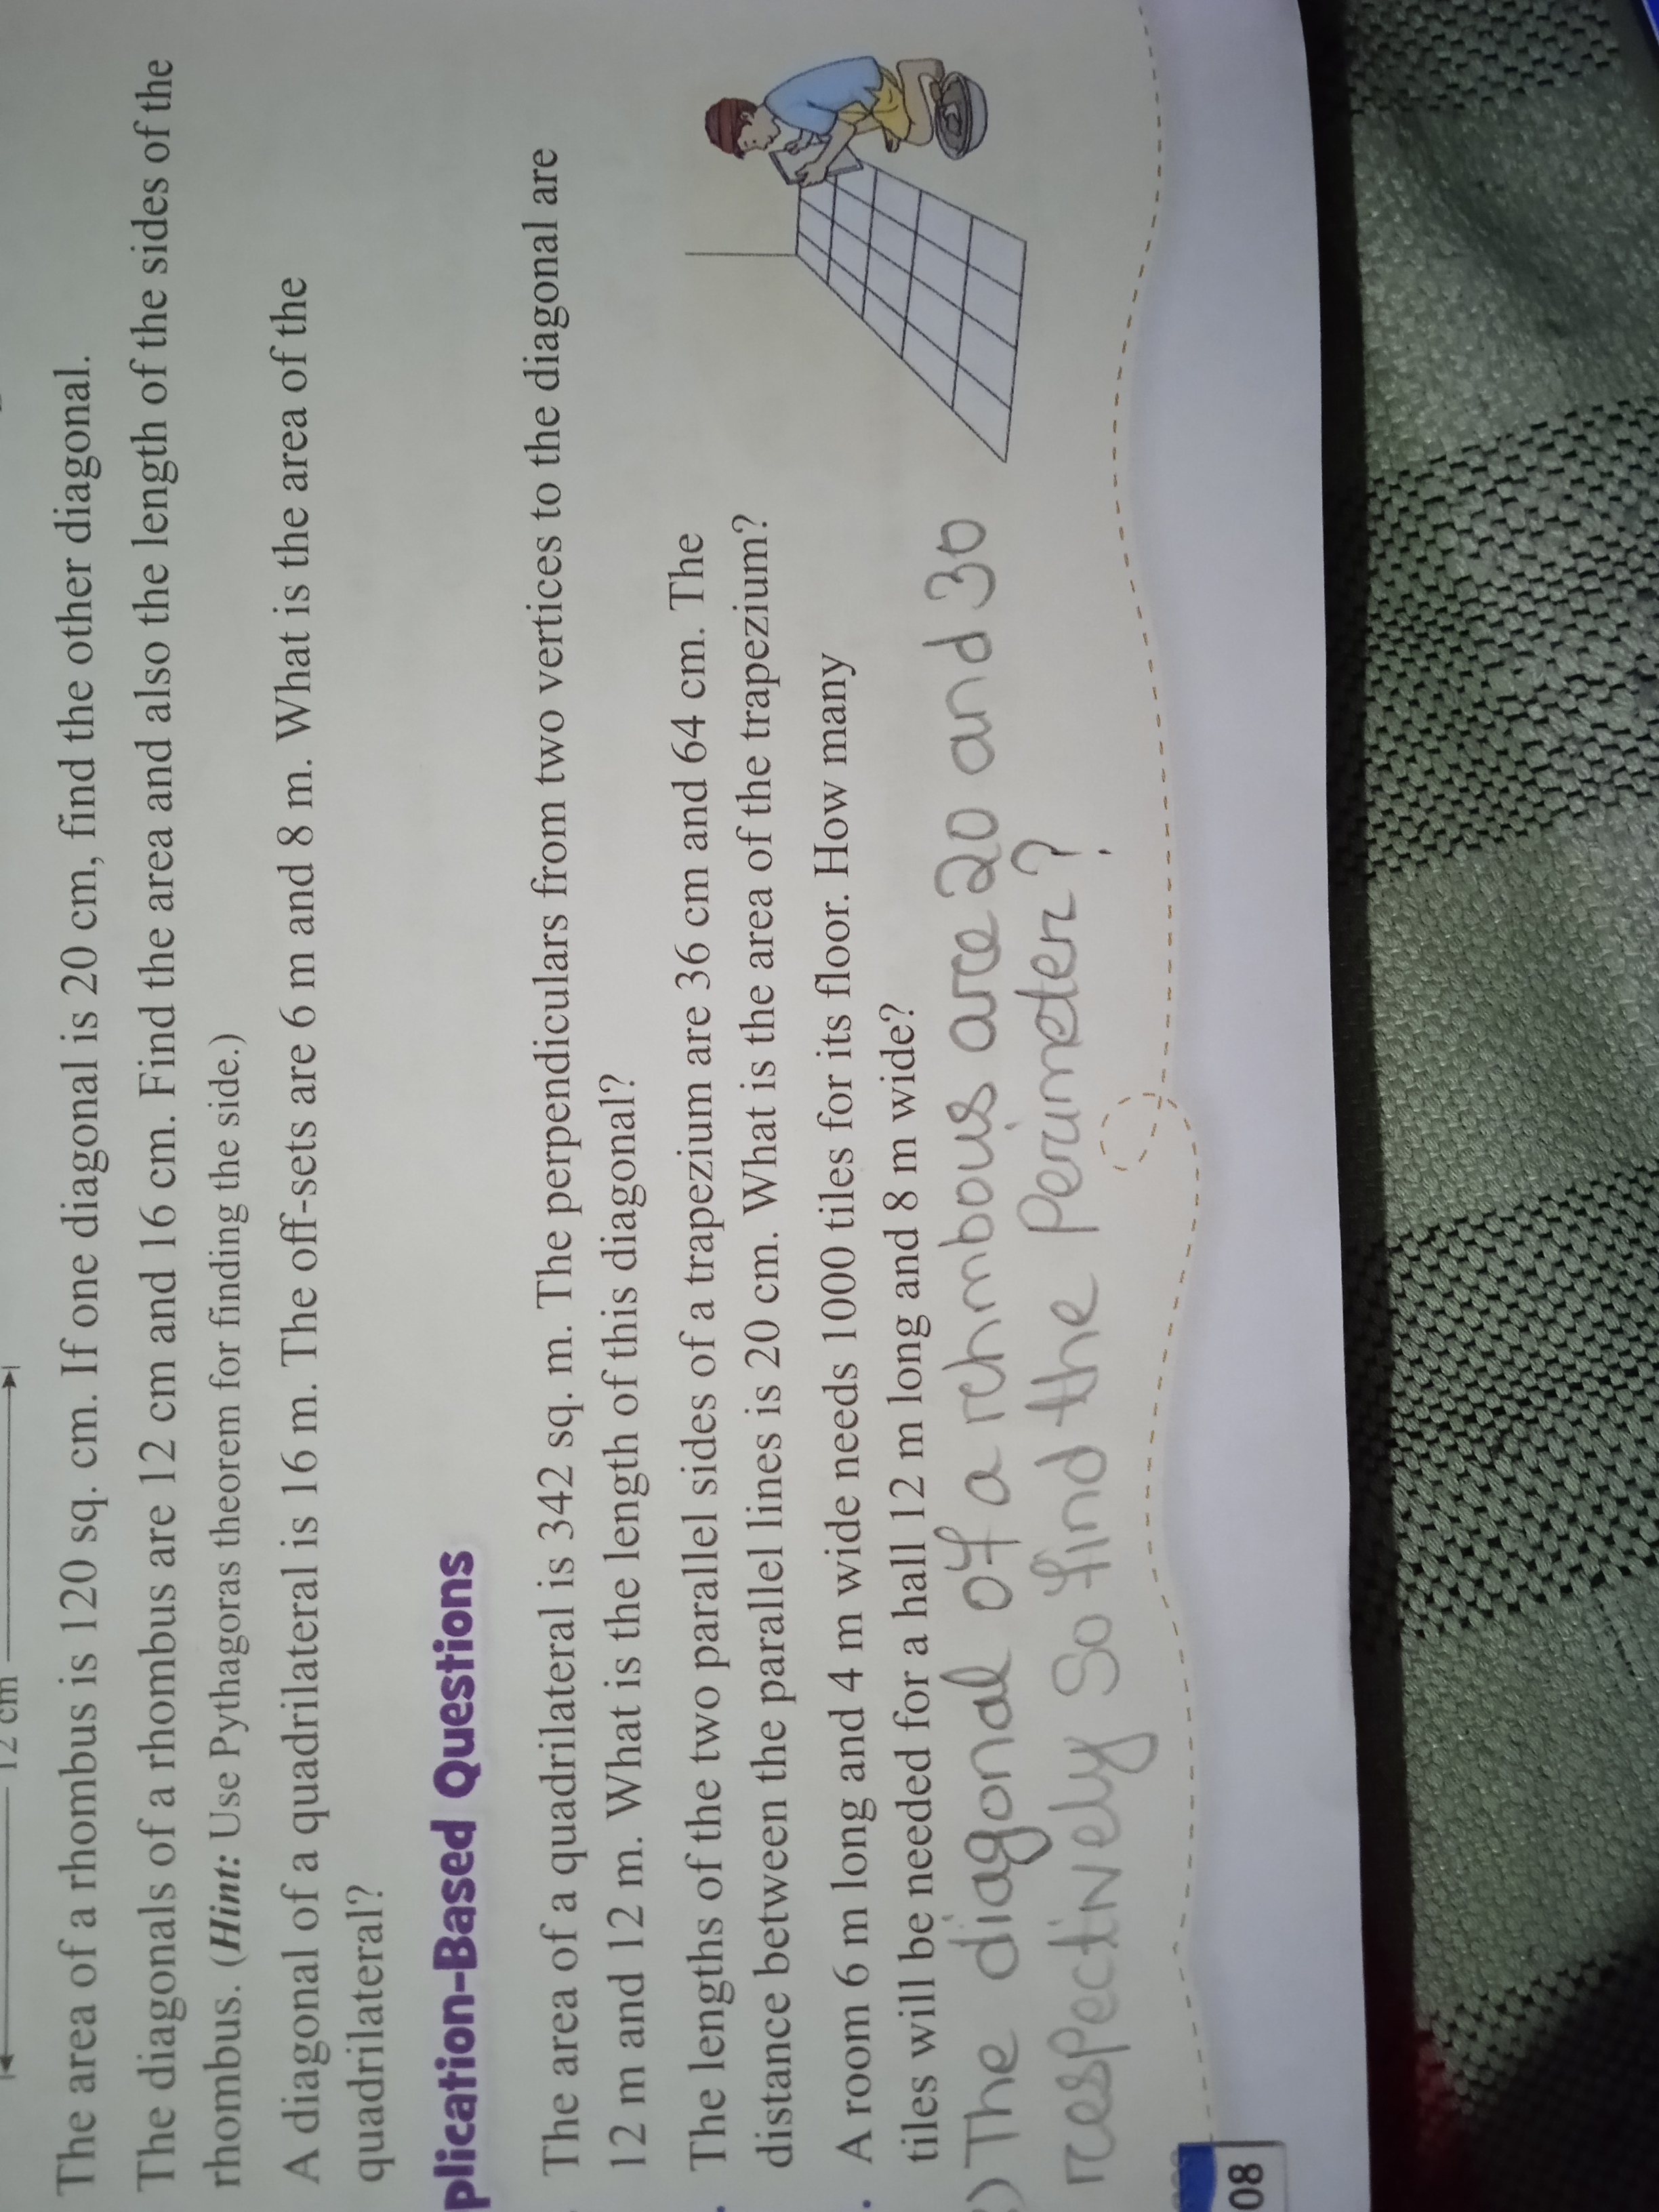 12 cm
The area of a rhombus is 120 sq. cm. If one diagonal is 20 cm, find the other diagonal.
The diagonals of a rhombus are 12 cm and 16 cm. Find the area and also the length of the sides of the
rhombus. (Hint: Use Pythagoras theorem for finding the side.)
A diagonal of a quadrilateral is 16 m. The off-sets are 6 m and 8 m. What is the area of the
quadrilateral?
plication-Based Questions
The area of a quadrilateral is 342 sq. m. The perpendiculars from two vertices to the diagonal are
12 m and 12 m. What is the length of this diagonal?
. The lengths of the two parallel sides of a trapezium are 36 cm and 64 cm. The
distance between the parallel lines is 20 cm. What is the area of the trapezium?
. A room 6 m long and 4 m wide needs 1000 tiles for its floor. How many
tiles will be needed for a hall 12 m long and 8 m wide?
) The diagonal of a rchmbouis are 20 and 30
respectively So find the Perimeter?
08